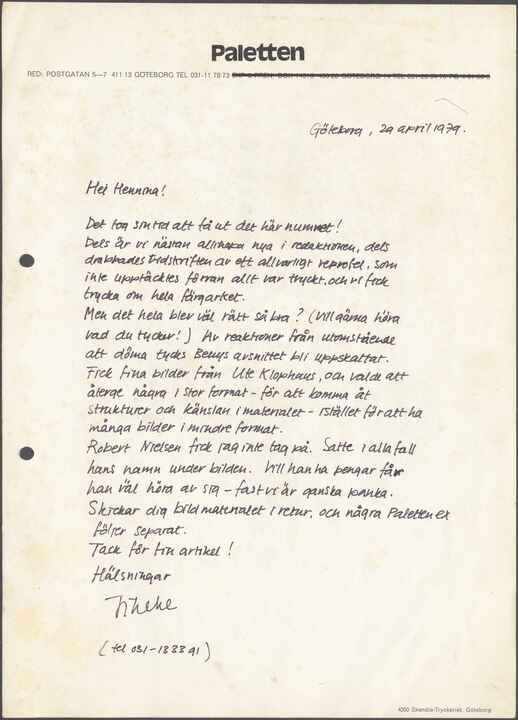 Paletten
RED: POSTGATAN 5—7 411 13 GÖTEBORG TEL 031-11 78 73
Göteborg, 29 april 1979.
Hej Henning!
Det tog sin tid att få ut det här numret!
Dels är vi nästan allihopa nya i redaktionen, dels
drabbades tidskriften av ett allvarligt reprofel, som
inte upptäcktes förrän allt var tryckt, och vi fick
trycka om hela färgarket.
Men det hela blev väl rätt så bra? (Vill gärna höra
vad du tycker!) Av reaktioner från utomstående
att döma tycks Beuys avsnittet bli uppskattat.
Fick fina bilder från Ute Klophaus, och valde att
återge några i stor format - för att komma åt
strukturer och känslan i materialet - istället för att ha
många bilder i mindre format.
Robert Nielsen fick jag inte tag på. Satte i alla fall
hans namn under bilden. Vill han ha pengar får
han väl höra av sig - fast vi är ganska panka.
Skickar dig bildmaterialet i retur, och några Paletten ex
följer separat.
Tack för fin artikel!
Hälsningar
(tel 031-13 33 91)
4350 Skandia-Tryckeriet, Göteborg